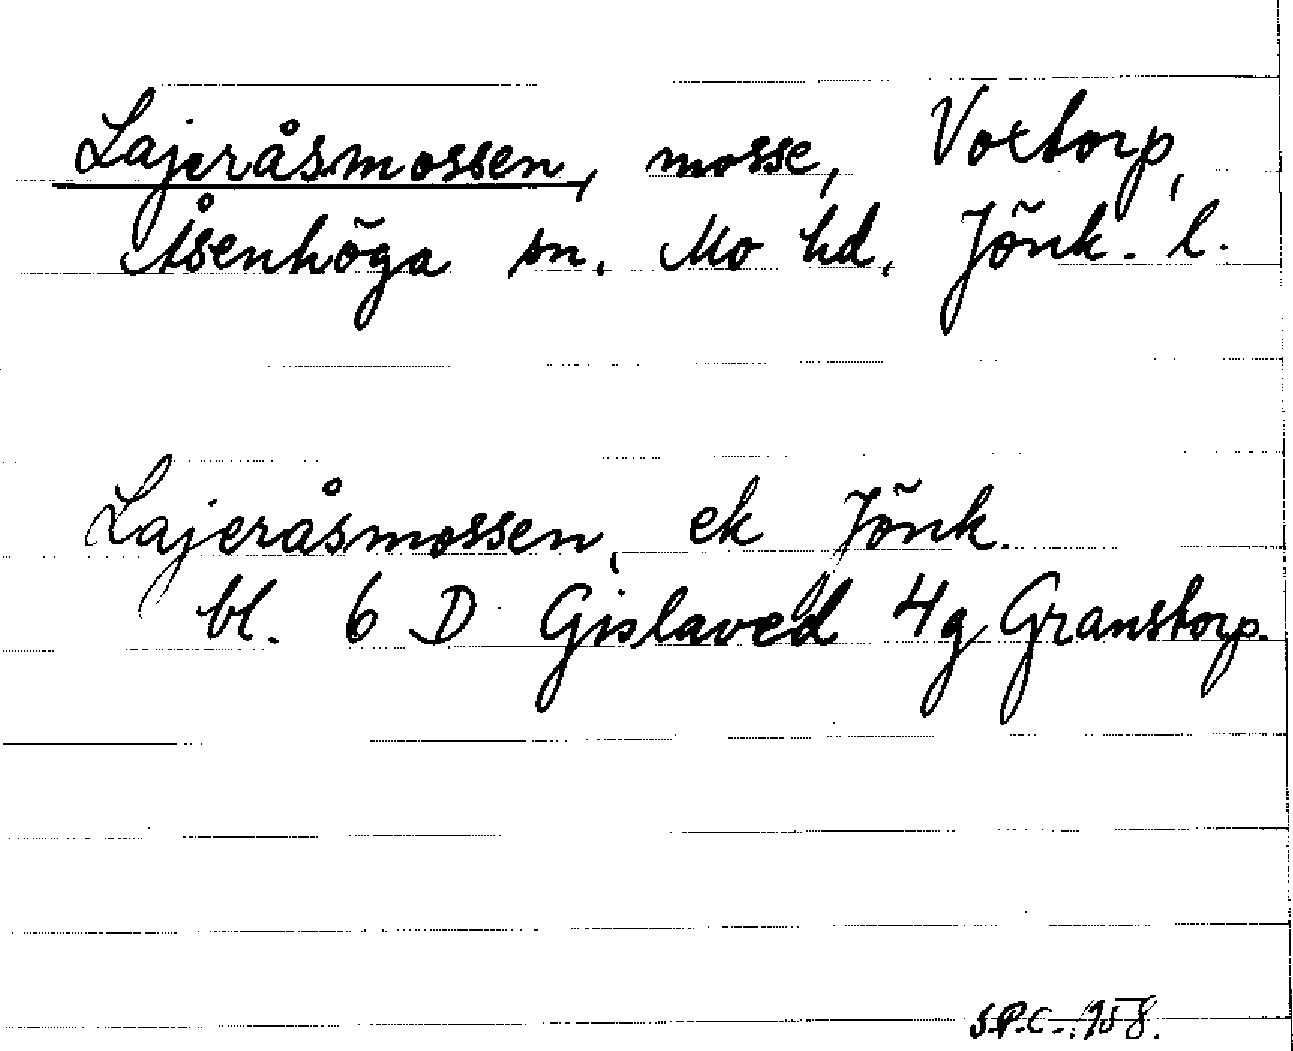 Lajeråsmossen, mosse, Voxtorp,
Åsenhöga sn. Mo hd. Jönk. l.
Lajeråsmossen, ek Jönk.
bl. 6 D Gislaved 4g Granstorp.
S.P.C. 1958.